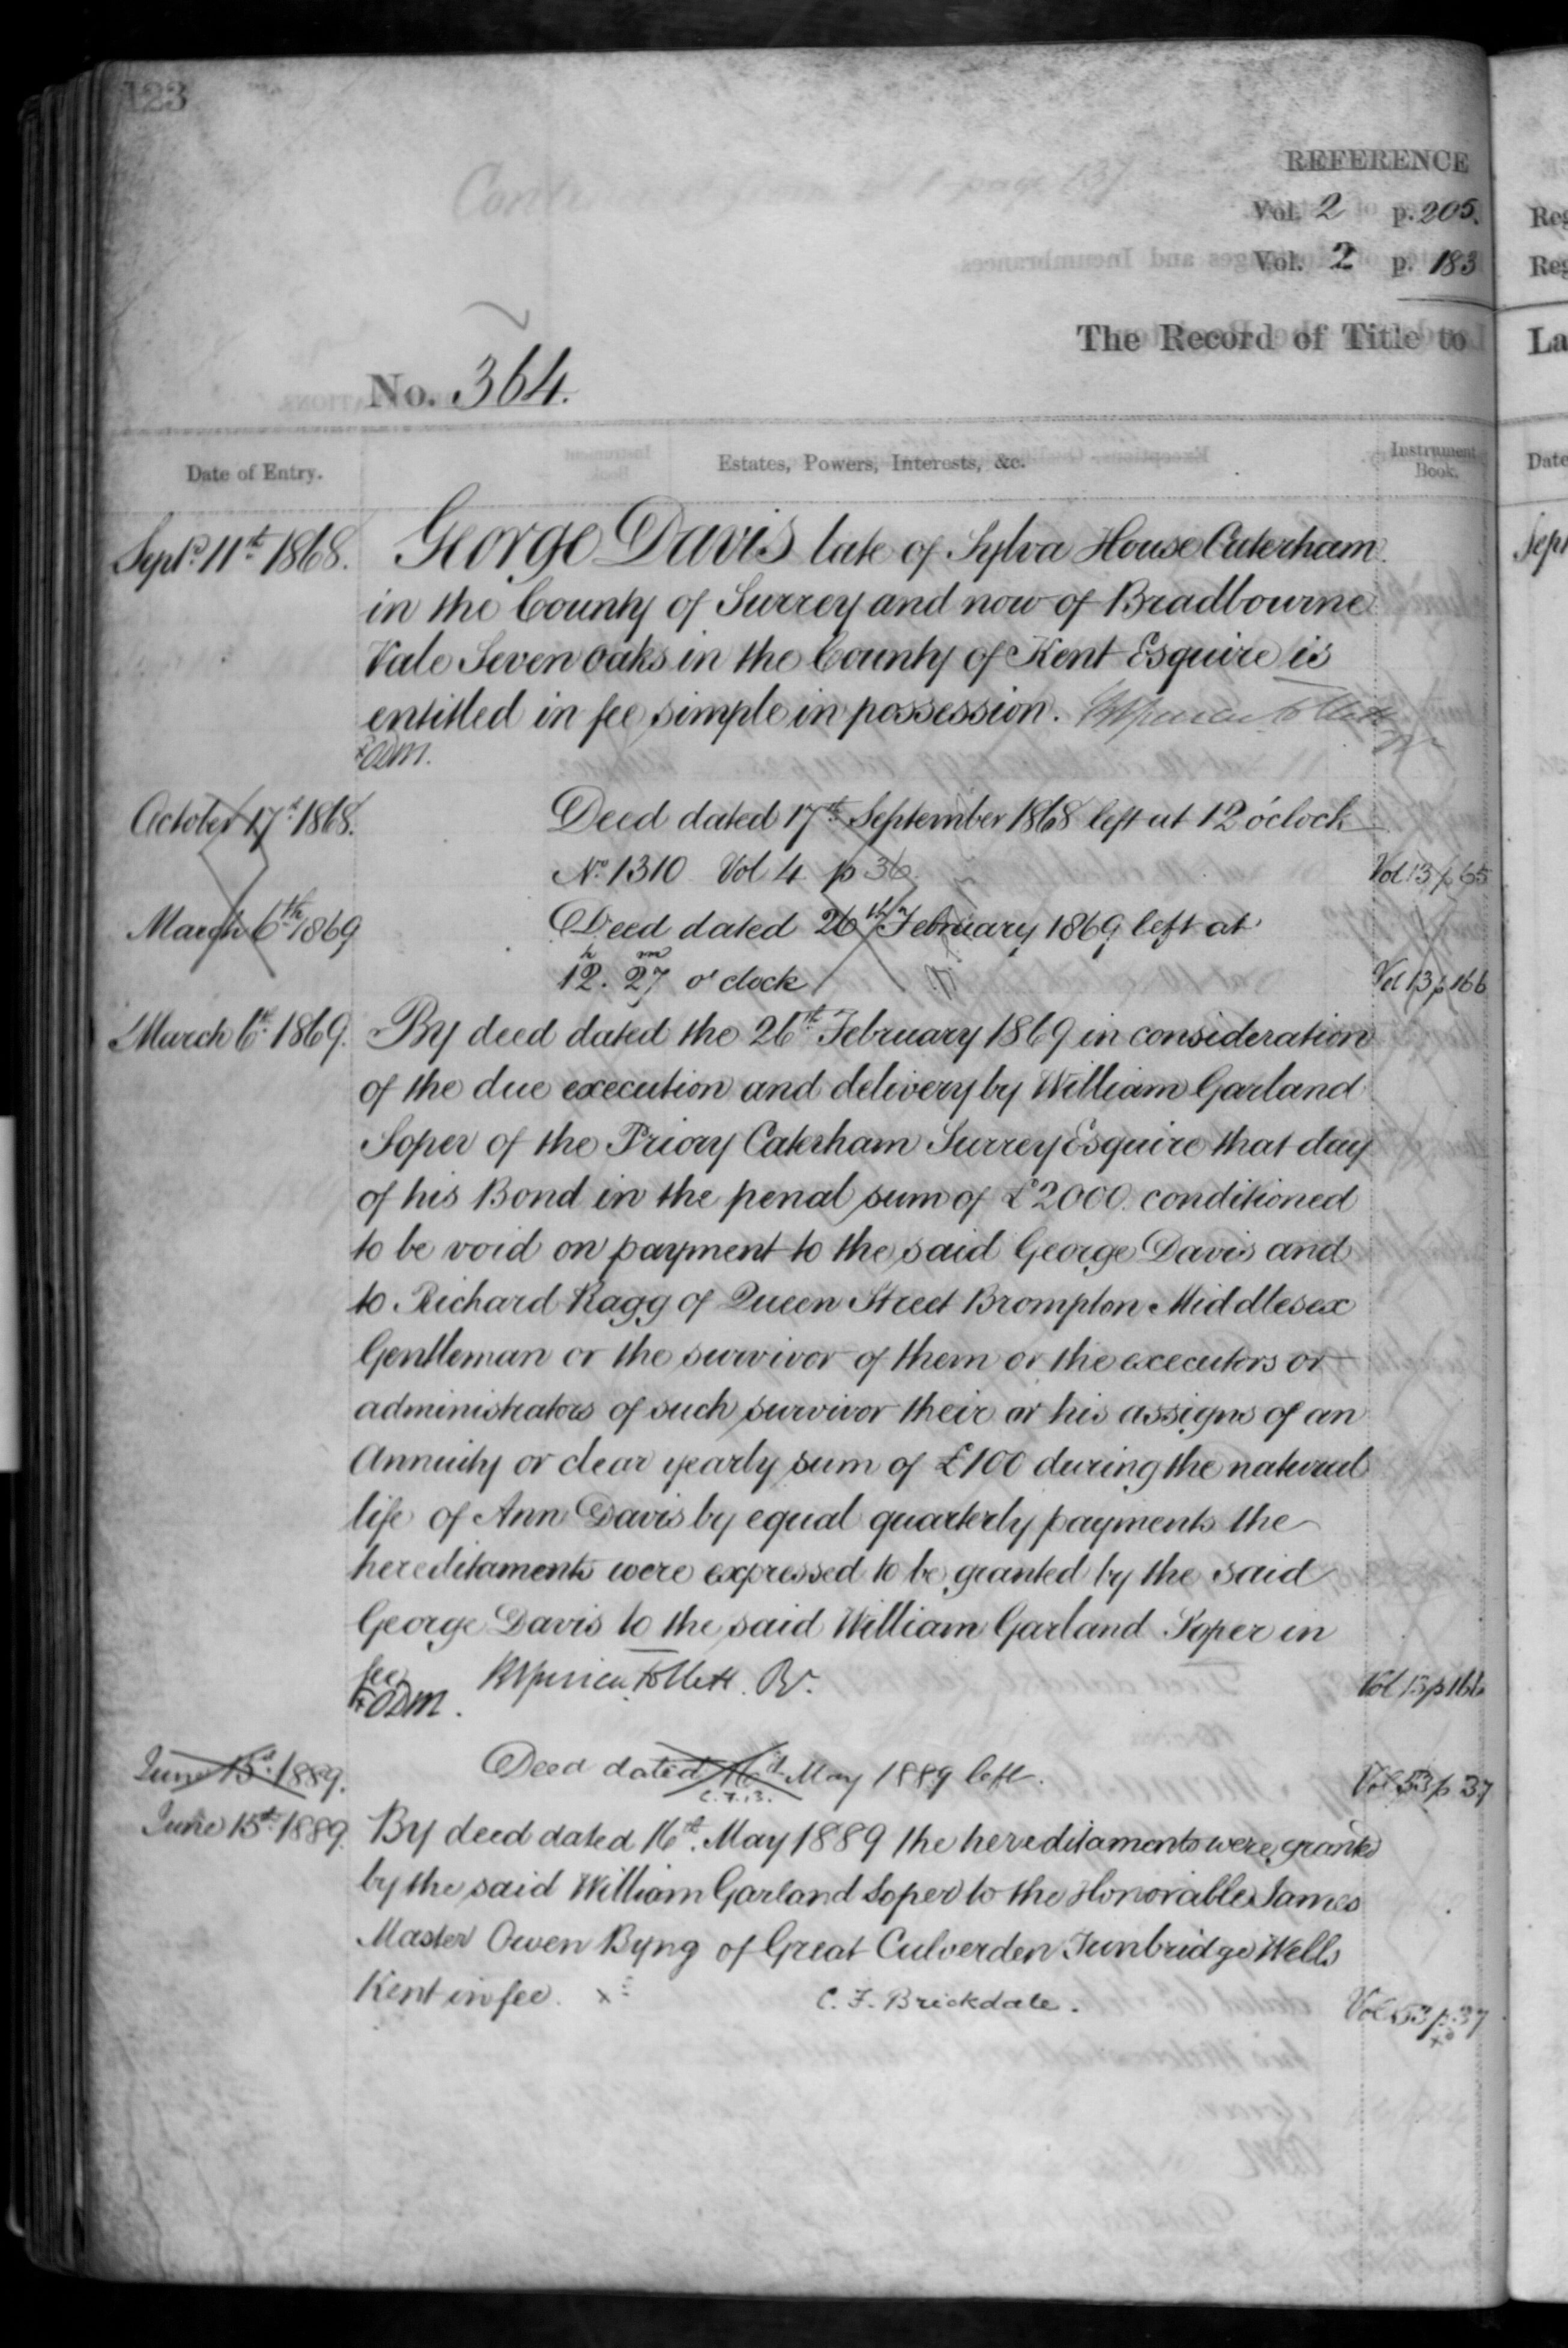 123
REFERENCE
Vol. 2 p. 205.
Vol. 2 p. 183
The Record of Title to
No. 364.
Date of Entry. Estates, Powers, Interests, &c. Instrument Book.
Septr. 11th 1868. George Davis late of Sylva House Caterham
in the County of Surrey and now of Bradbourne
Vale Sevenoaks in the County of Kent Esquire is
entitled in fee simple in possession.
ODM.
October 17th 1868. Deed dated 17th September 1868 left at 12 o'clock
No. 1310 Vol 4 p 36. Vol 13 p 65
March 6th 1869 Deed dated 26th February 1869 left at
12h. 27m o'clock Vol 13 p 166
March 6th 1869. By deed dated the 26th February 1869 in consideration
of the due execution and delivery by William Garland
Soper of the Priory Caterham Surrey Esquire that day
of his Bond in the penal sum of £2000 conditioned
to be void on payment to the said George Davis and
to Richard Ragg of Queen Street Brompton Middlesex
Gentleman or the survivor of them or the executors or
administrators of such survivor their or his assigns of an
Annuity or clear yearly sum of £100 during the natural
life of Ann Davis by equal quarterly payments the
hereditaments were expressed to be granted by the said
George Davis to the said William Garland Soper in
fee Vol 13 p 166
ODM.
June 15th 1889. Deed dated 16th May 1889 left. Vol 53 p 37
C.F.B.
June 15th 1889. By deed dated 16th May 1889 the hereditaments were granted
by the said William Garland Soper to the Honorable James
Master Owen Byng of Great Culverden Tunbridge Wells
Kent in fee. x C. F. Brickdale. Vol 53 p. 37
Reg
Reg
La
Date
Sept